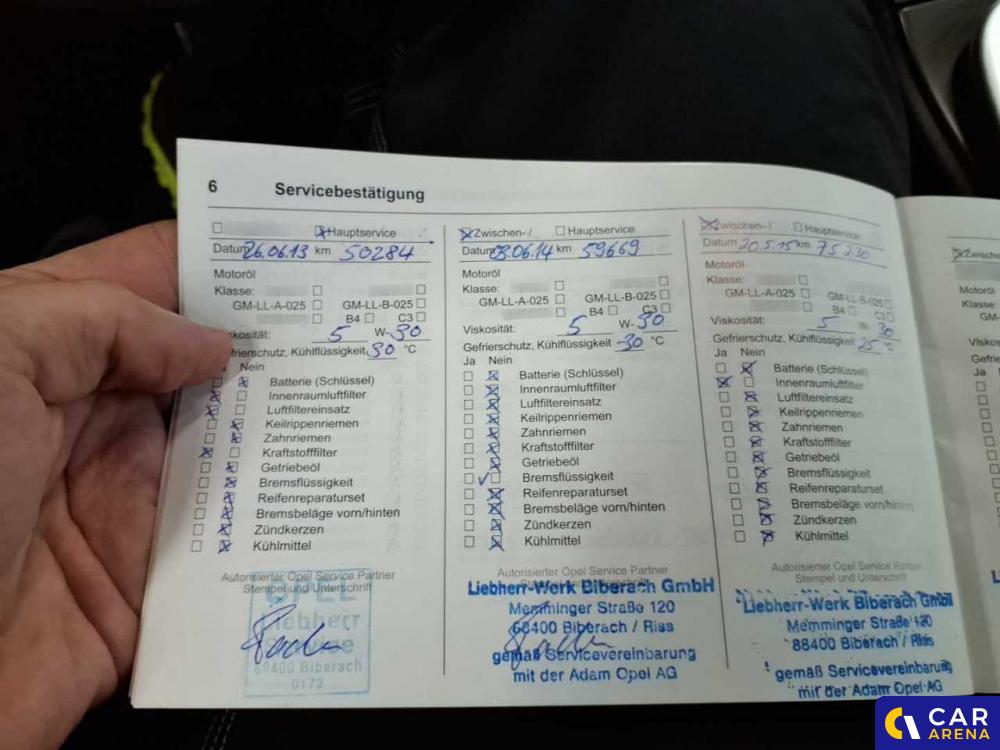 6 Servicebestätigung
Hauptservice
Datum 26.06.13 km 50284
Motoröl
Klasse:
GM-LL-A-025 GM-LL-B-025
B4 C3
skosität: 5 W- 30
frierschutz, Kühlflüssigkeit 30 °C
Nein
Batterie (Schlüssel)
Innenraumluftfilter
Luftfiltereinsatz
Keilrippenriemen
Zahnriemen
Kraftstofffilter
Getriebeöl
Bremsflüssigkeit
Reifenreparaturset
Bremsbeläge vorn/hinten
Zündkerzen
Kühlmittel
Autorisierter Opel Service Partner
Stempel und Unterschrift
OPEL
Liebherr
Service
88400 Biberach
0172
Zwischen-/ Hauptservice
Datum 03.06.14 km 59669
Motoröl
Klasse:
GM-LL-A-025 GM-LL-B-025
B4 C3
Viskosität: 5 W- 30
Gefrierschutz, Kühlflüssigkeit -30 °C
Ja Nein
Batterie (Schlüssel)
Innenraumluftfilter
Luftfiltereinsatz
Keilrippenriemen
Zahnriemen
Kraftstofffilter
Getriebeöl
Bremsflüssigkeit
Reifenreparaturset
Bremsbeläge vorn/hinten
Zündkerzen
Kühlmittel
Autorisierter Opel Service Partner
Stempel und Unterschrift
Liebherr-Werk Biberach GmbH
Memminger Straße 120
88400 Biberach / Riss
gemäß Servicevereinbarung
mit der Adam Opel AG
Zwischen-/ Hauptservice
Datum 20.5.15 km 75230
Motoröl
Klasse:
GM-LL-A-025 GM-LL-B-025
B4 C3
Viskosität: 5 W- 30
Gefrierschutz, Kühlflüssigkeit 25 °C
Ja Nein
Batterie (Schlüssel)
Innenraumluftfilter
Luftfiltereinsatz
Keilrippenriemen
Zahnriemen
Kraftstofffilter
Getriebeöl
Bremsflüssigkeit
Reifenreparaturset
Bremsbeläge vorn/hinten
Zündkerzen
Kühlmittel
Autorisierter Opel Service Partner
Stempel und Unterschrift
Liebherr-Werk Biberach GmbH
Memminger Straße 120
88400 Biberach / Riss
gemäß Servicevereinbarung
mit der Adam Opel AG
Zwischen-
Datum
Motoröl
Klasse:
GM-
Viskos
Gefrie
Ja
CAR
ARENA